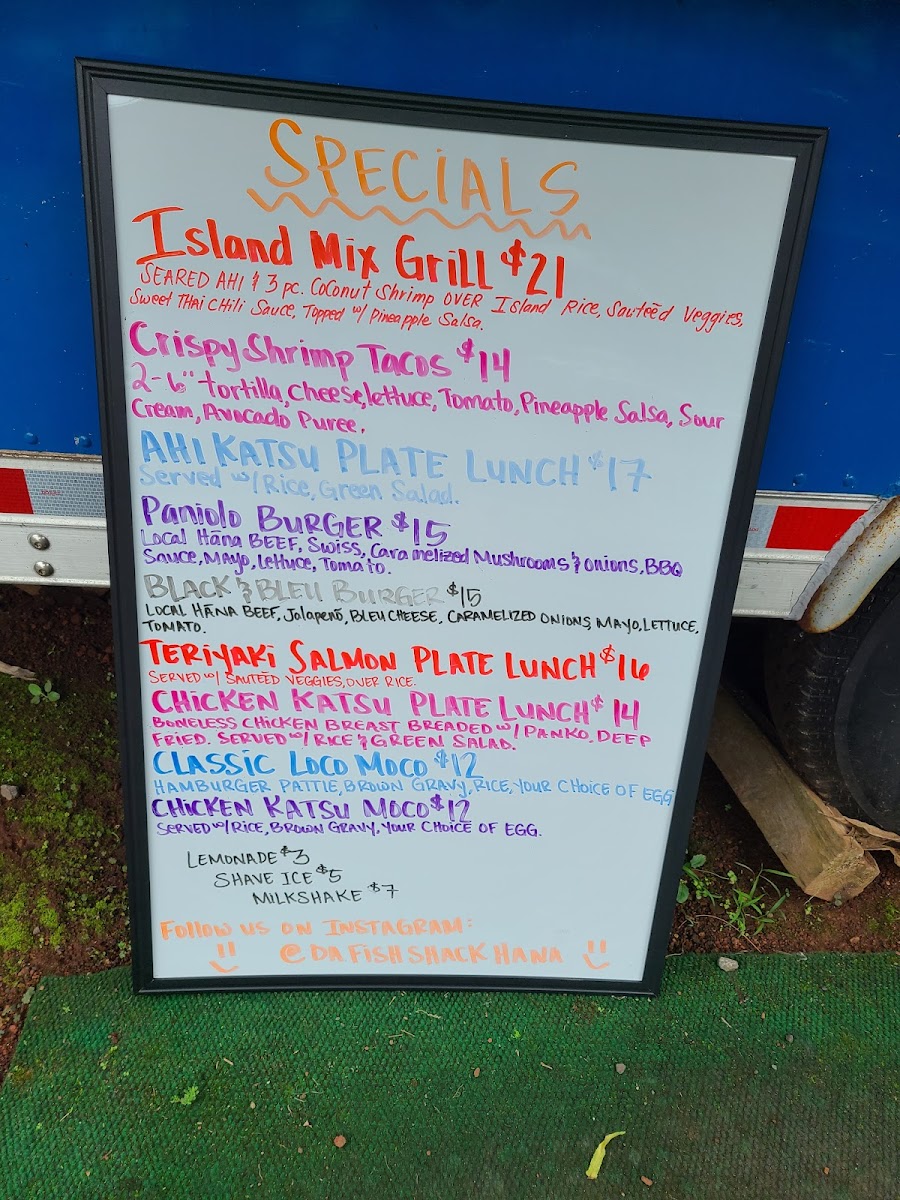 SPECIALS
Island Mix Grill $21
SEARED AHI & 3 pc. Coconut Shrimp OVER Island Rice, Sauteēd Veggies,
Sweet THAI CHili Sauce, Topped w/ Pineapple Salsa.
Crispy Shrimp Tacos $14
2-6" tortilla, Cheese, lettuce, Tomato, Pineapple Salsa, Sour
Cream, Avocado Puree,
AHI KATSU PLATE LUNCH $17
Served w/ Rice, Green Salad.
Paniolo BURGER $15
Local Hāna BEEF, Swiss, Caramelized Mushrooms & onions, BBQ
Sauce, Mayo, Lettuce, Tomato.
BLACK & BLEU BURGER $15
LOCAL HĀNA BEEF, Jalapenō, BLEU CHEESE, CARAMELIZED ONIONS, MAYO, LETTUCE,
TOMATO.
TERIYAKI SALMON PLATE LUNCH $16
SERVED w/ SAUTEED VEGGIES, OVER RICE.
CHICKEN KATSU PLATE LUNCH $14
BONELESS CHICKEN BREAST BREADED w/ PANKO. DEEP
FRIED. SERVED w/ RICE & GREEN SALAD.
CLASSIC LOCO MOCO $12
HAMBURGER PATTIE, BROWN GRAVY, RICE, YOUR CHOICE OF EGG
CHICKEN KATSU MOCO $12
SERVED w/ RICE, BROWN GRAVY, YOUR CHOICE OF EGG.
LEMONADE $3
SHAVE ICE $5
MILKSHAKE $7
FOLLOW US ON INSTAGRAM:
@DAFISHSHACKHANA